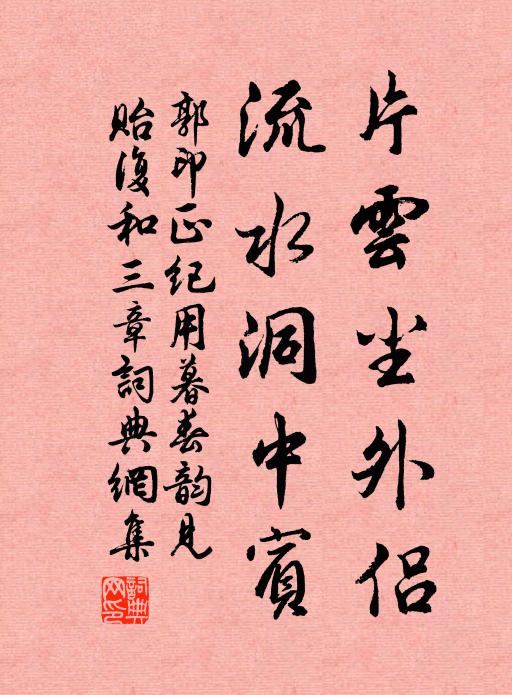 片雲尘外侣
流水洞中賓
郭印正纪用暮春韵見
貽復和三章詞典網集
詞典网印